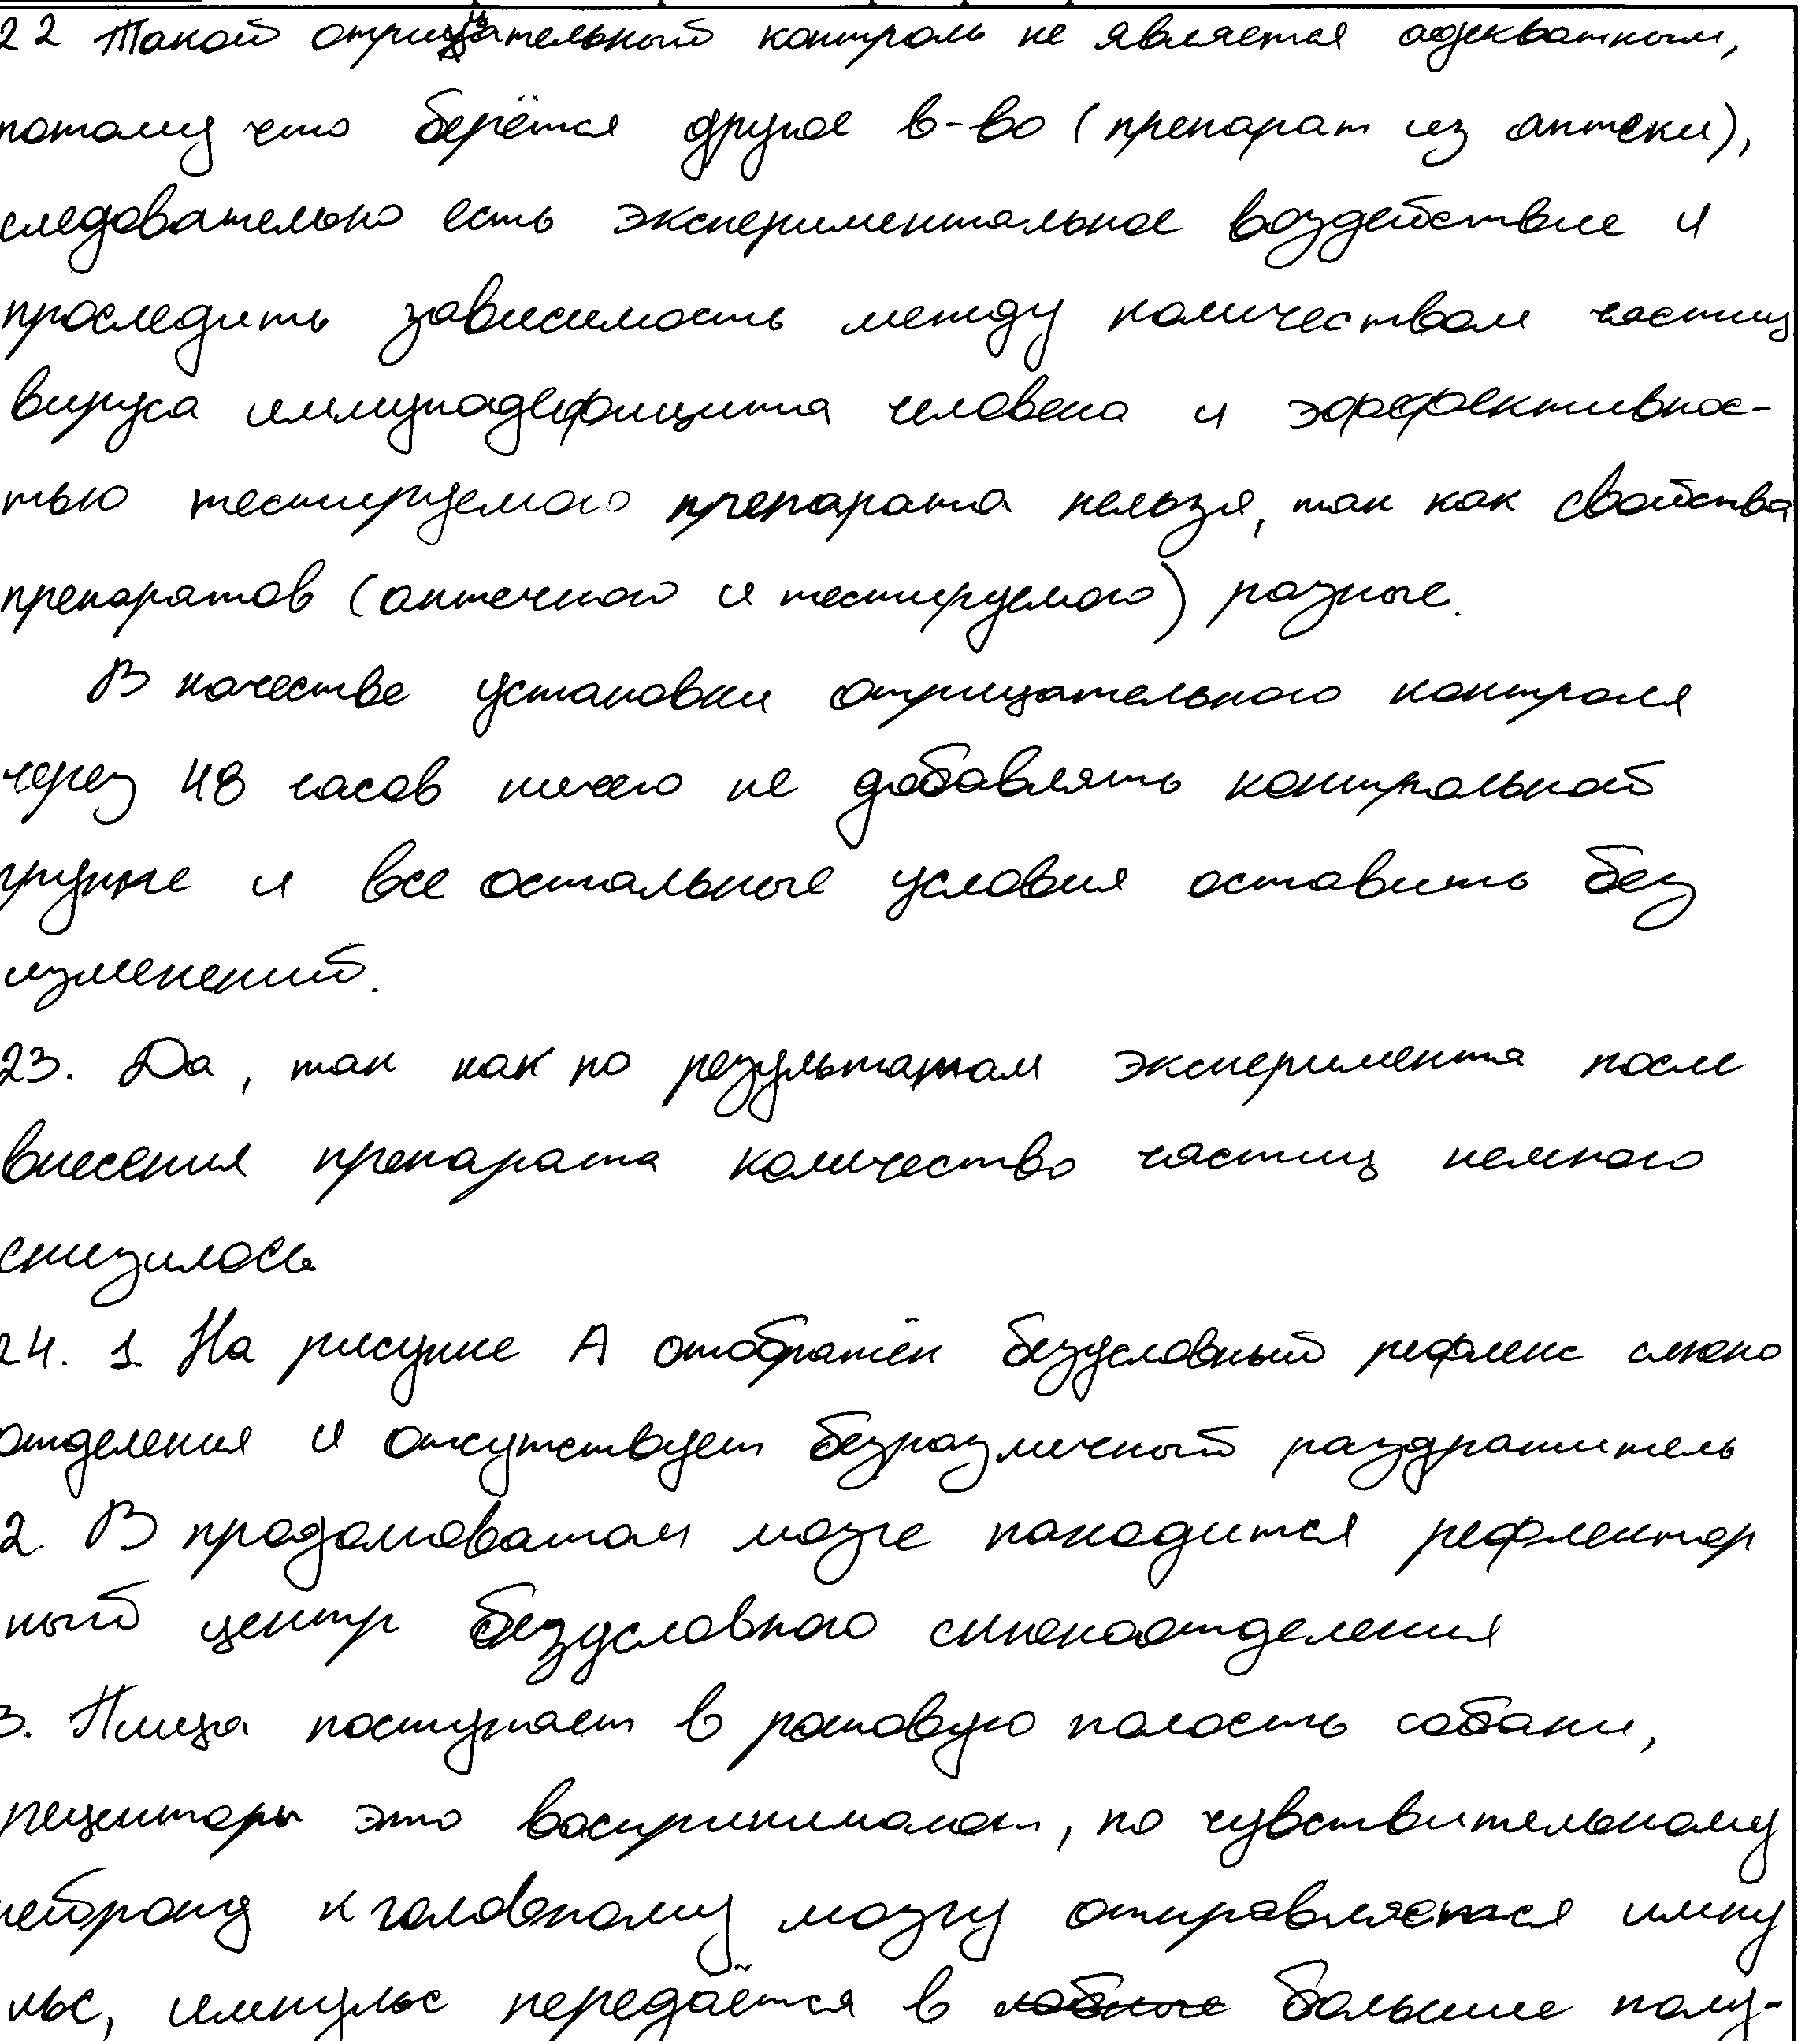 22 Такой отрицательный контроль не является адекватным,
потому что берётся другое в-во (препарат из аптеки),
следовательно есть экспериментальное воздействие и
проследить зависимость между количеством частиц
вируса иммунодефицита человека и эффективнос-
тью тестируемого препарата нельзя, так как свойства
препаратов (аптечного и тестируемого) разные.
В качестве установки отрицательного контроля
через 48 часов ничего не добавлять контрольной
группе и все остальные условия оставить без
изменений.
23. Да, так как по результатам эксперимента после
внесения препарата количество частиц немного
снизилось
24. 1. На рисунке А отображён безусловный рефлекс слюно
отделения и отсутствует безразличный раздражитель
2. В продолговатом мозге находится рефлектор
ный центр безусловного слюноотделения
3. Пища поступает в ротовую полость собаки,
рецепторы это воспринимают, по чувствительному
нейрону к головному мозгу отправляется импу
льс, импульс передаётся в лобные большие полу-